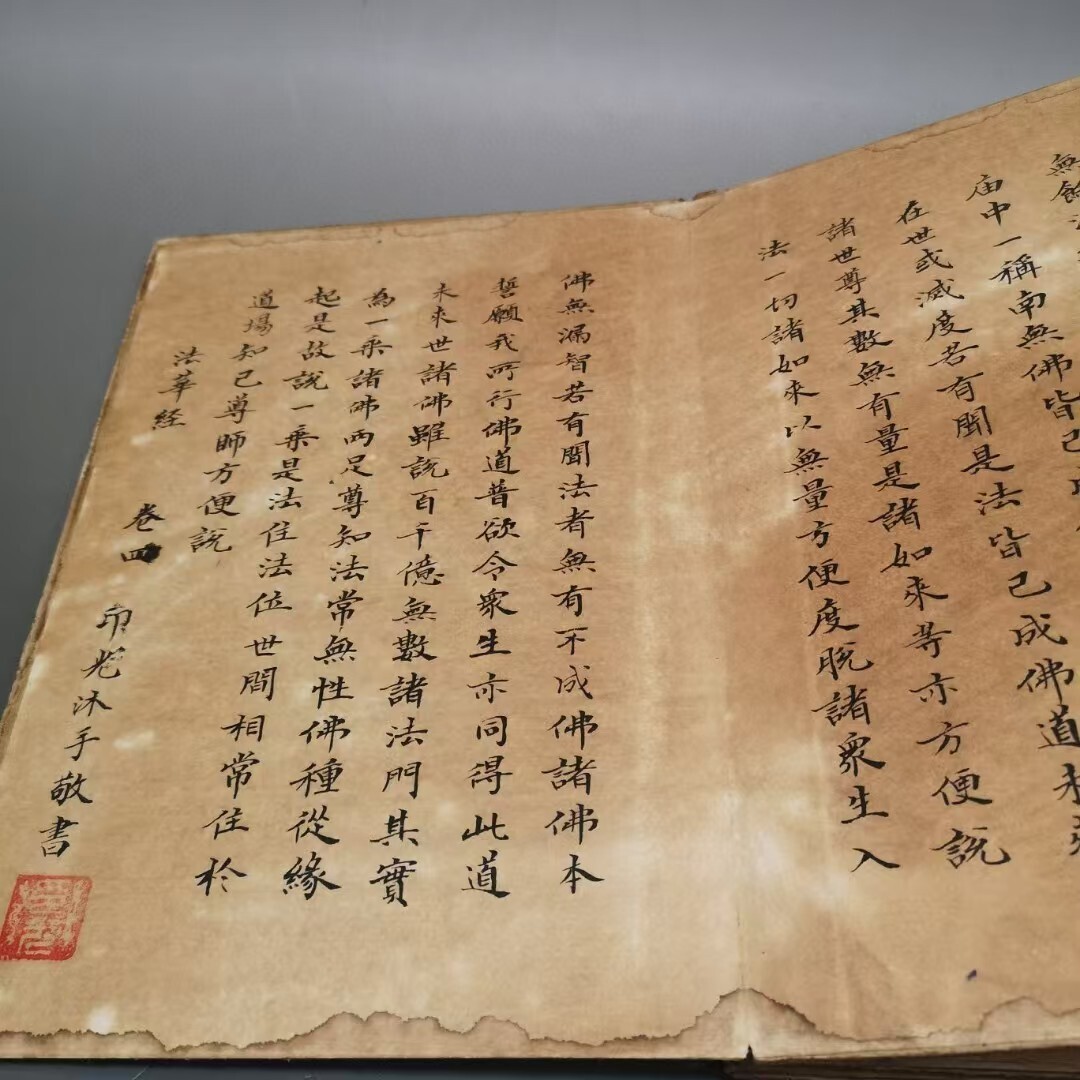 無餘
庙中一稱南無佛皆已
在世或滅度若有聞是法皆已成佛道未來
諸世尊其數無有量是諸如來等亦方便說
法一切諸如來以無量方便度脫諸衆生入
佛無漏智若有聞法者無有不成佛諸佛本
誓願我所行佛道普欲令衆生亦同得此道
未來世諸佛雖說百千億無數諸法門其實
為一乘諸佛兩足尊知法常無性佛種從緣
起是故說一乘是法住法位世間相常住於
道場知已尊師方便說
法華経 卷四
印光沐手敬書